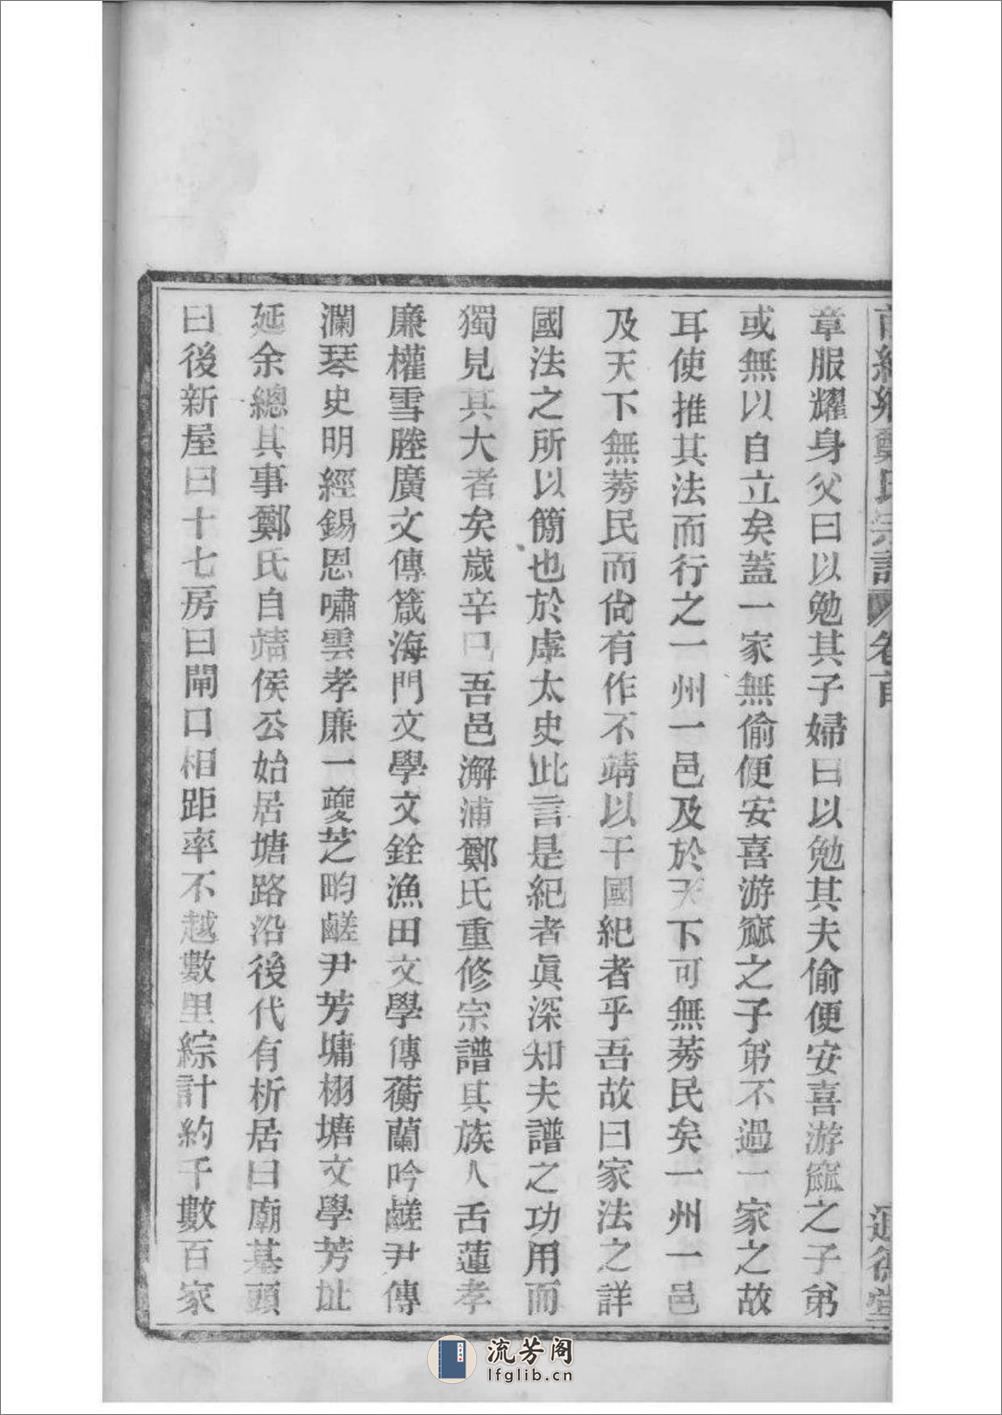 章服耀身父曰以勉其子婦曰以勉其夫偷便安喜游窳之子弟
或無以自立矣蓋一家無偷便安喜游窳之子弟不過一家之故
耳使推其法而行之一州一邑及於天下可無莠民矣一州一邑
及天下無莠民而尙有作不靖以干國紀者乎吾故曰家法之詳
國法之所以簡也於虖太史此言是紀者眞深知夫譜之功用而
獨見其大者矣歲辛巳吾邑澥浦鄭氏重修宗譜其族人舌蓮孝
廉權雪塍廣文傳箴海門文學文銓漁田文學傳蘅蘭吟鹺尹傳
瀾琴史明經錫恩嘯雲孝廉一夔芝畇鹺尹芳墉栩塘文學芳址
延余總其事鄭氏自靖侯公始居塘路沿後代有析居曰廟基頭
曰後新屋曰十七房曰閘口相距率不越數里綜計約千數百家
鄭氏宗譜 卷首
流芳阁
lfglib.cn